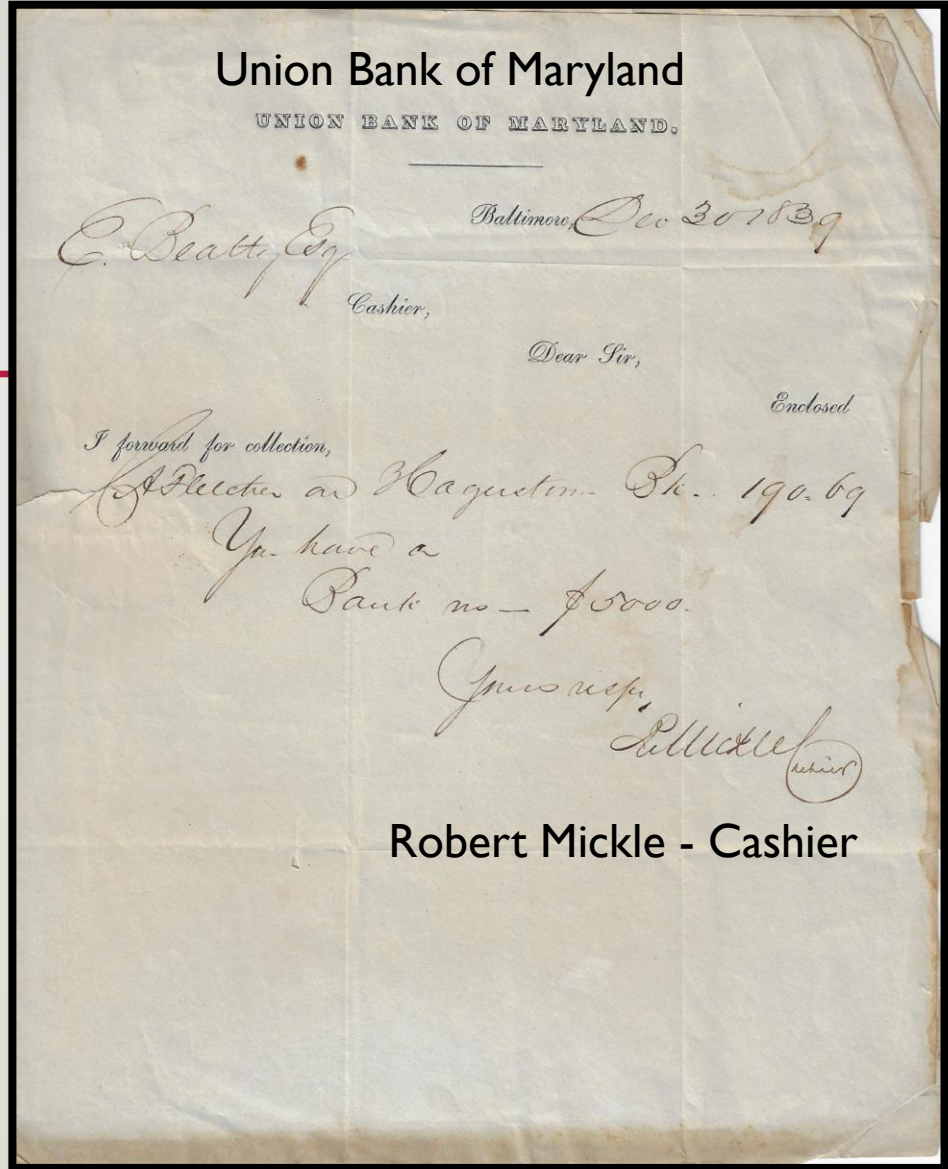 Union Bank of Maryland
UNION BANK OF MARYLAND.
Baltimore, Dec 30 1839
E. Beatty Esq
Cashier,
Dear Sir,
Enclosed
I forward for collection,
A Fletcher on Hagerstown Bk. 190.69
You have a
Bank no — $5000.
Yours respy,
R Mickle Cashier
Robert Mickle - Cashier